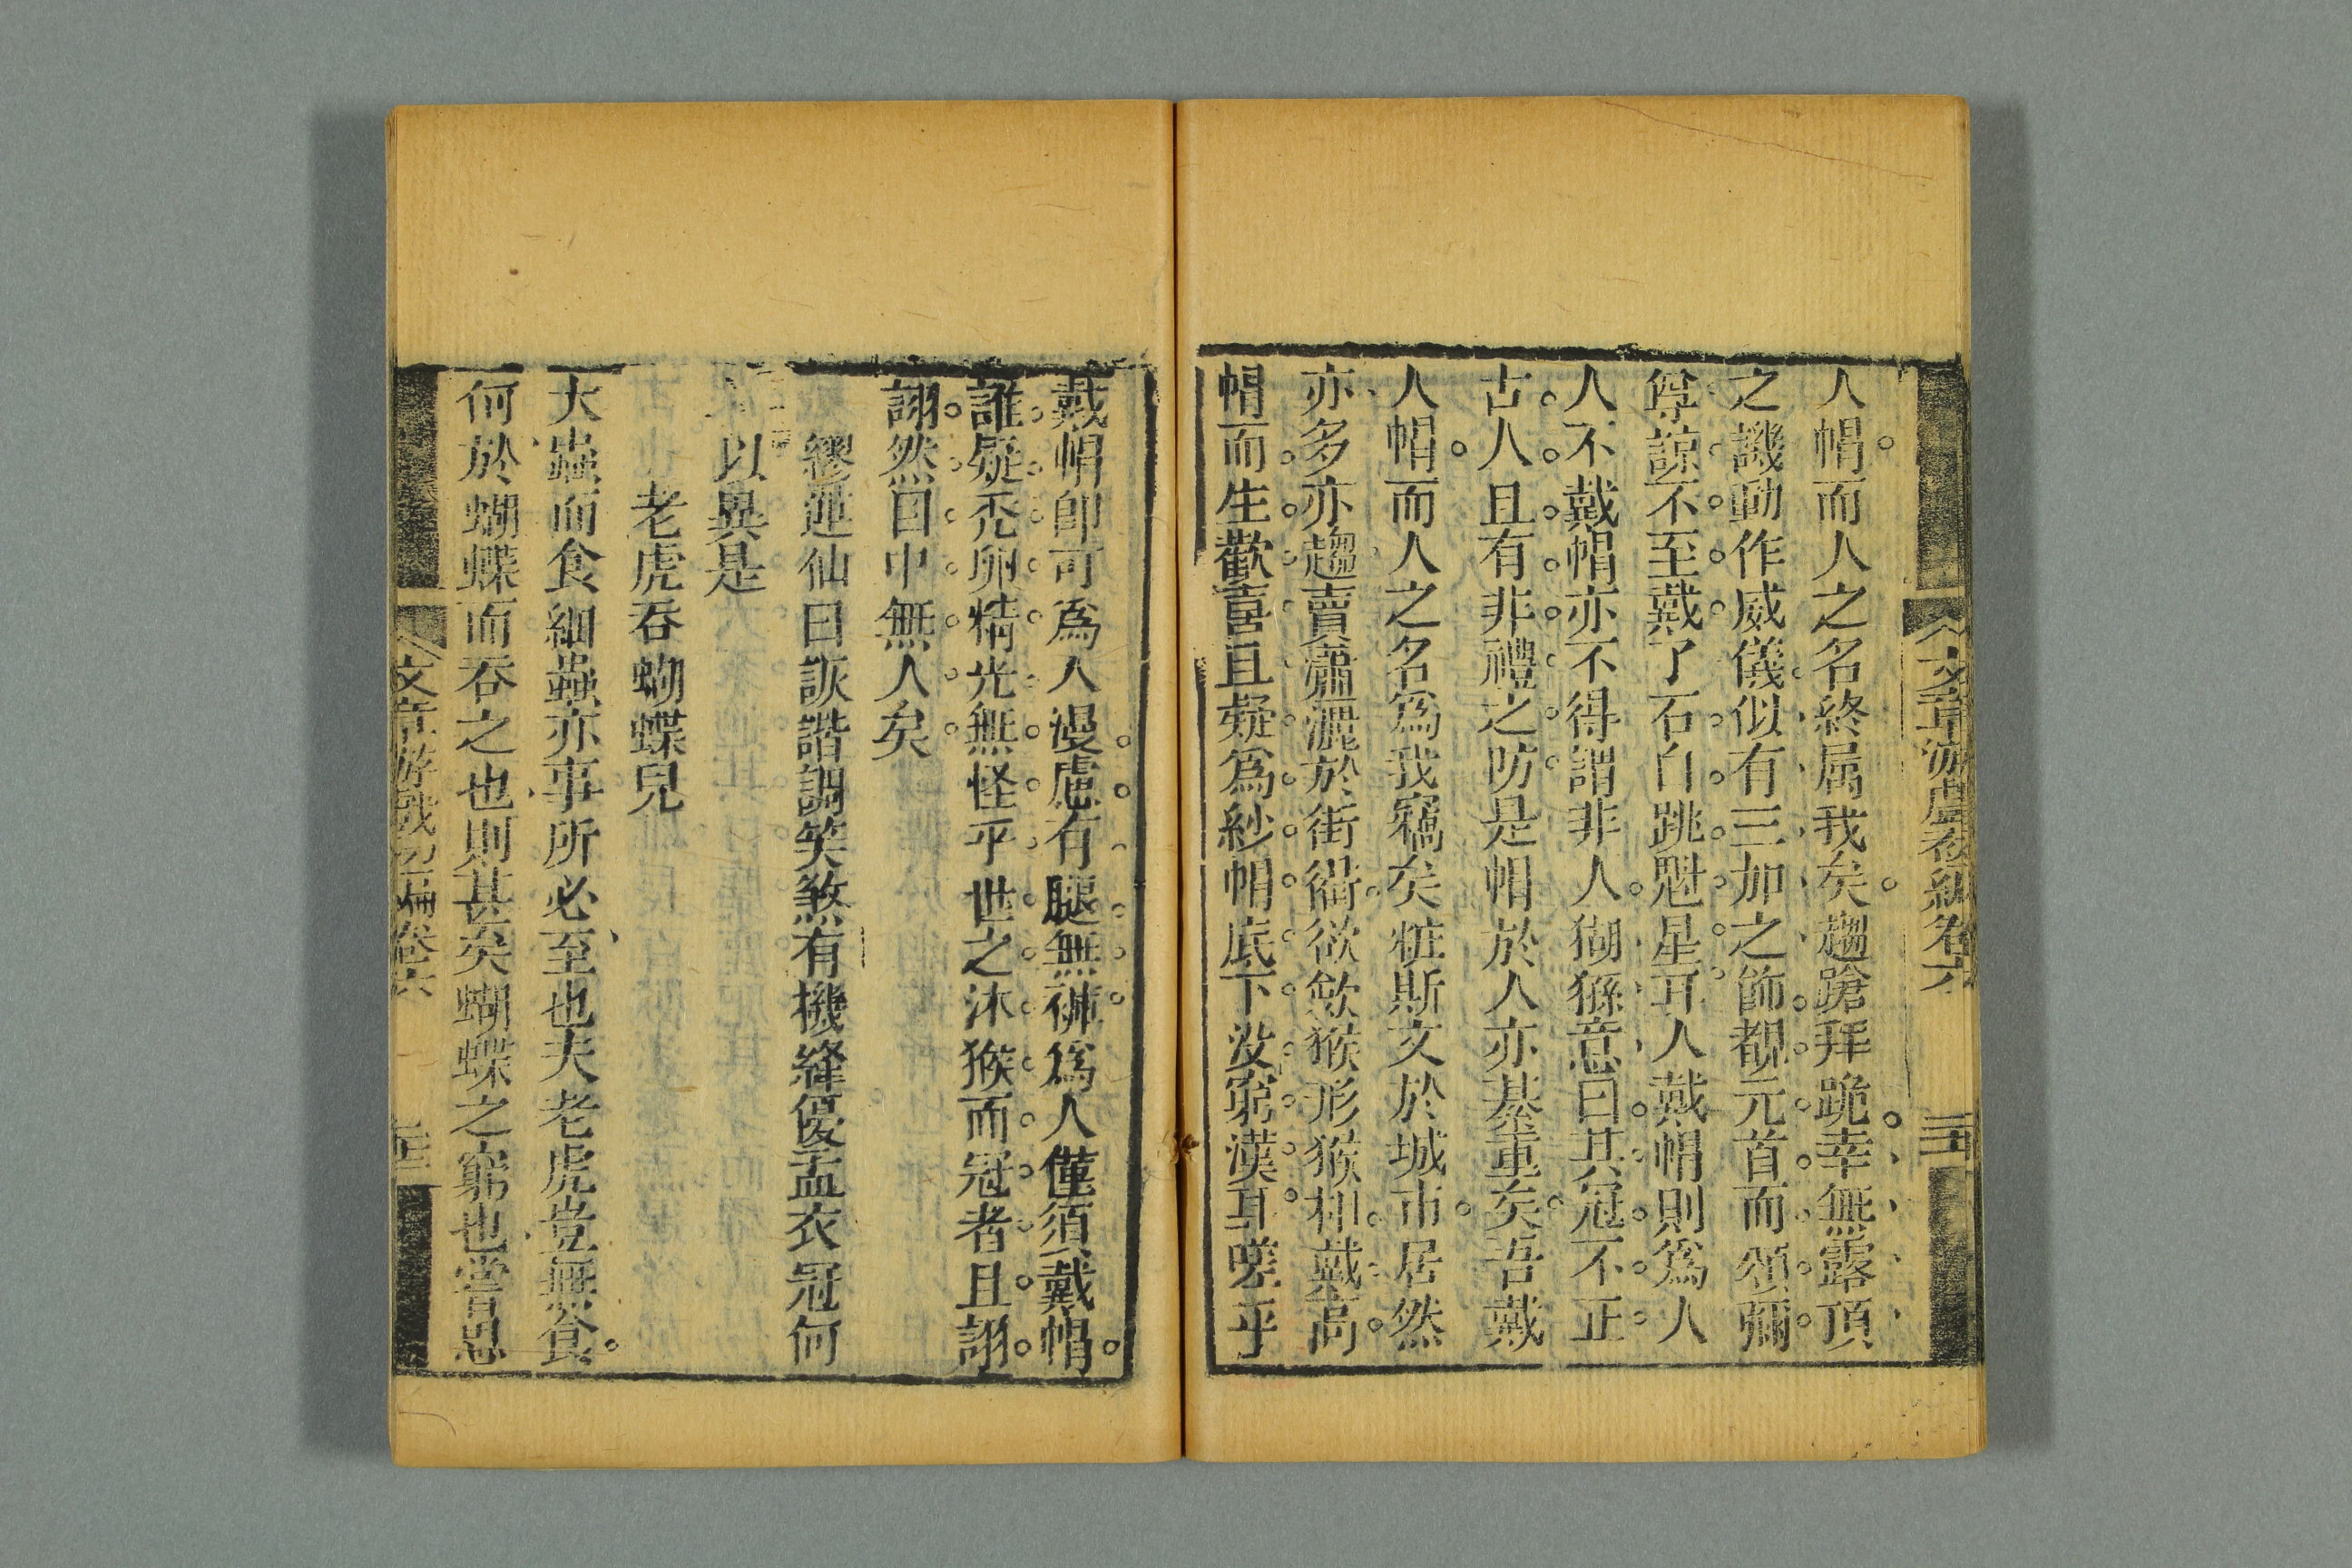 人帽而人之名終属我矣趨蹌拜跪幸無露頂
之譏動作威儀似有三加之飾覩元首而頌彌
尊諒不至戴了石臼跳魁星耳人戴帽則爲人
人不戴帽亦不得謂非人猢猻意曰其冠不正
古人且有非禮之防是帽於人亦綦重矣吾戴
人帽而人之名爲我竊矣粧斯文於城市居然
亦多亦趨賣瀟灑於街衢欲斂猴形猴相戴高
帽而生歡喜且疑爲紗帽底下没窮漢耳嗟乎
戴帽卽可爲人漫慮有腿無褲爲人僅須戴帽
誰疑禿卵精光無怪乎世之沐猴而冠者且詡
詡然目中無人矣
繆蓮仙曰詼諧調笑煞有機鋒優孟衣冠何
以異是
老虎吞蝴蝶兒
大蟲而食細蟲亦事所必至也夫老虎豈無食
何於蝴蝶而吞之也則甚矣蝴蝶之窮也嘗思
文章游戲 編卷六